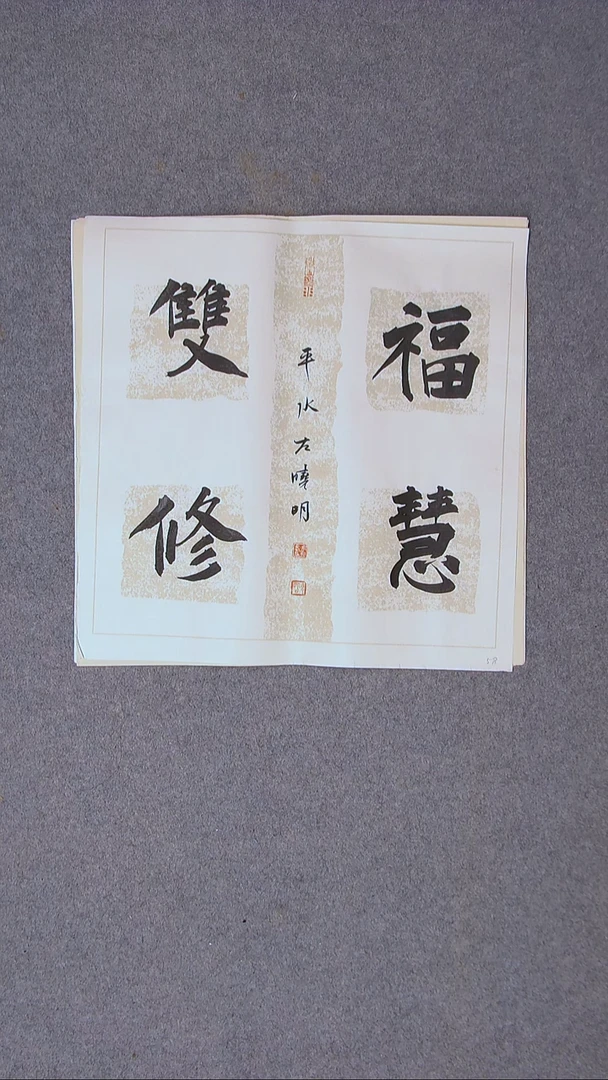 福慧
雙修
平水左曉明
58